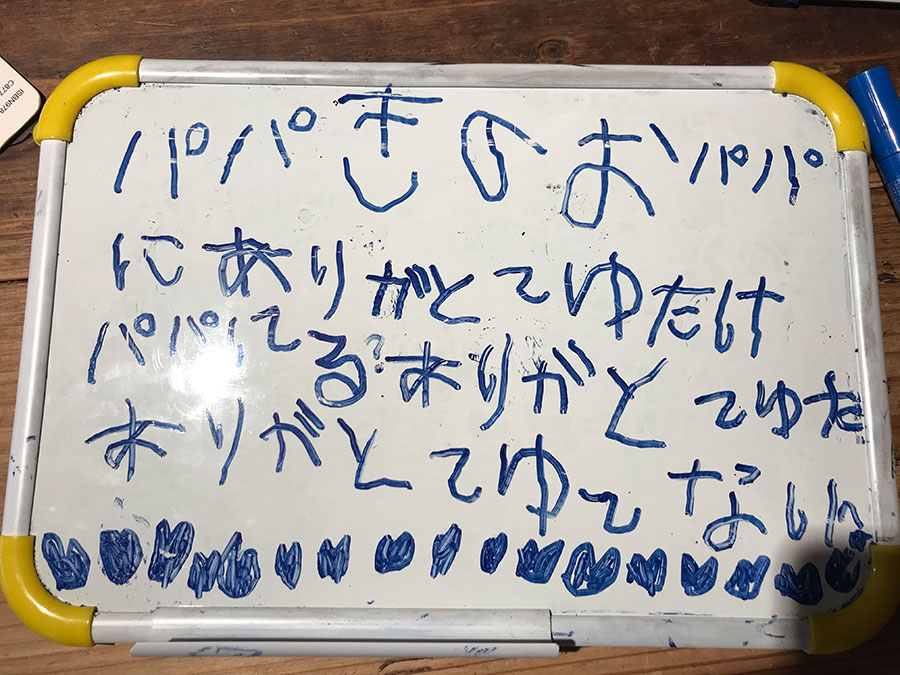 パパきのおパパ
にありがとてゆたけ
パパしてる?ありがとてゆた
ありがとてゆてないん
ISBN978